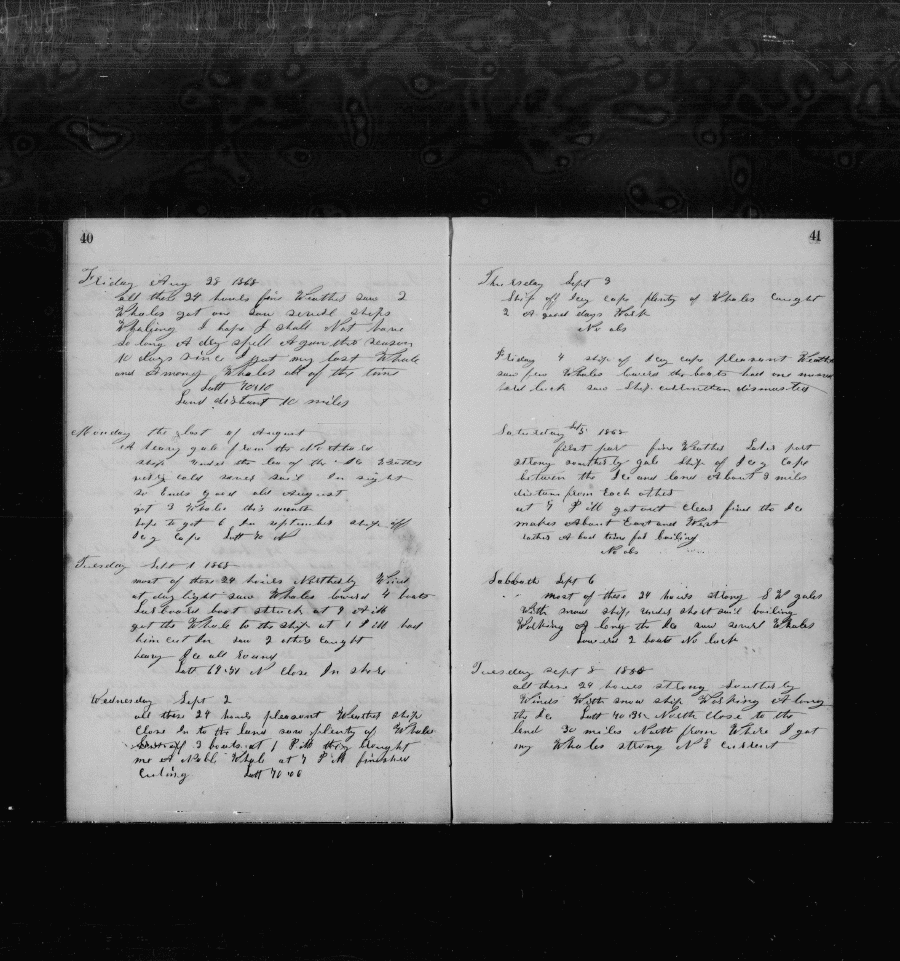 40
Friday Aug 28 1868
all these 24 hours fine Weather saw 2
Whales got one saw severl ships
Whaleing I hope I shall Not have
so long A dry spell Again this season
10 days since I got my last Whale
and Among Whales all of the time
Latt 70.10
Land distant 10 miles
Monday the last of August
A heavy gale from the Northard
ship under the lee of the Ice Weather
verry cold severl sail In sight
so Ends good old August
got 3 Whales this month
hope to get 6 In september ship off
Icy Cape Latt 70 N
Tuesday Sept 1 1868
most of these 24 hours Northerly Wind
at daylight saw Whales lowered 4 boats
Larboard boat struck at 9 A M
got the Whale to the ship at 1 P M had
him cut In saw 2 others caught
heavy Ice all Around
Latt 69.54 N Close In shore
Wednesday Sept 2
all these 24 hours pleasant Weather ship
Close In to the Land saw plenty of Whales
3 boats at 1 P M they brought
me A Noble Whale at 7 P M finished
Cuting Latt 70.06
41
Thursday Sept 3
Ship off Icy cape plenty of Whales Caught
2 A good days Work
No obs
Friday 4 ship of Icy cape pleasant Weather
saw few Whales lowered the boats had one
bad luck saw Ship dismasted
Saturday Sept 5 1868
first part fine Weather Later part
strong southerly gale Ship of Icy Cape
between the Ice and land About 9 miles
distance from Each other
at 7 P M got out Clear find the Ice
makes About East and West
rather A bad time for boiling
No obs
Sabbath Sept 6
most of these 24 hours strong S W gales
With snow ship under short sail boiling
Working A long the Ice saw severl Whales
Lowered 2 boats No luck
Tuesday Sept 8 1868
all these 24 hours strong Southerly
Winds With snow ship Working A long
the Ice Latt 70 North Close to the
land 30 miles North from Where I got
my Whales strong N E Current